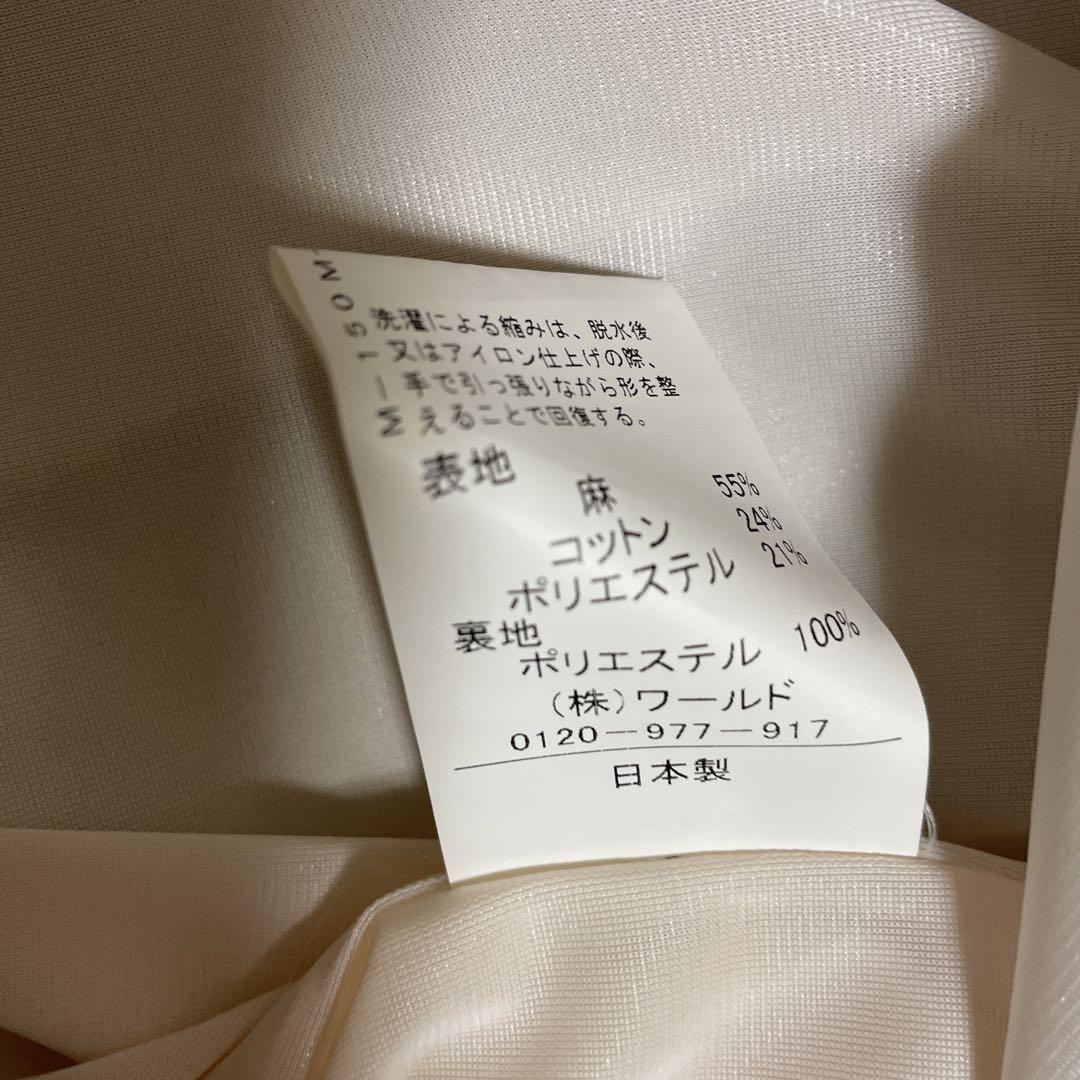 洗濯による縮みは、脱水後
又はアイロン仕上げの際、
手で引っ張りながら形を整
えることで回復する。
表地
麻 55%
コットン 24%
ポリエステル 21%
裏地
ポリエステル 100%
(株)ワールド
0120-977-917
日本製